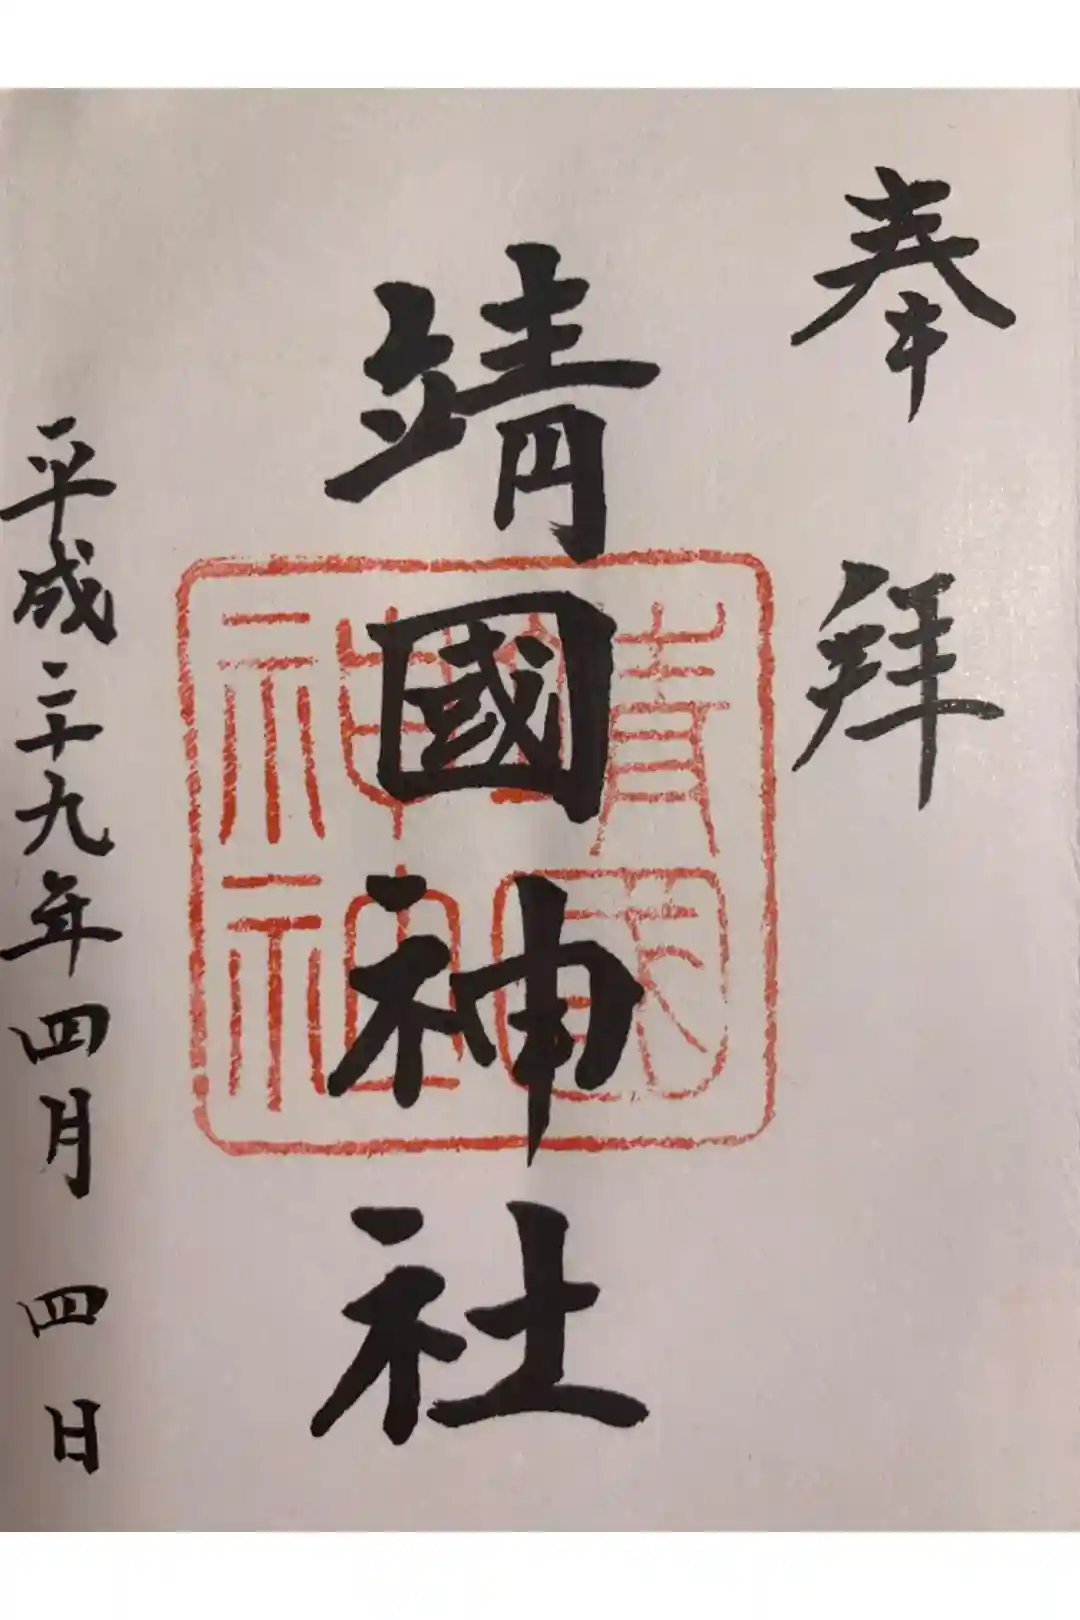 奉拜
靖國神社
靖國神社
平成二十九年四月四日